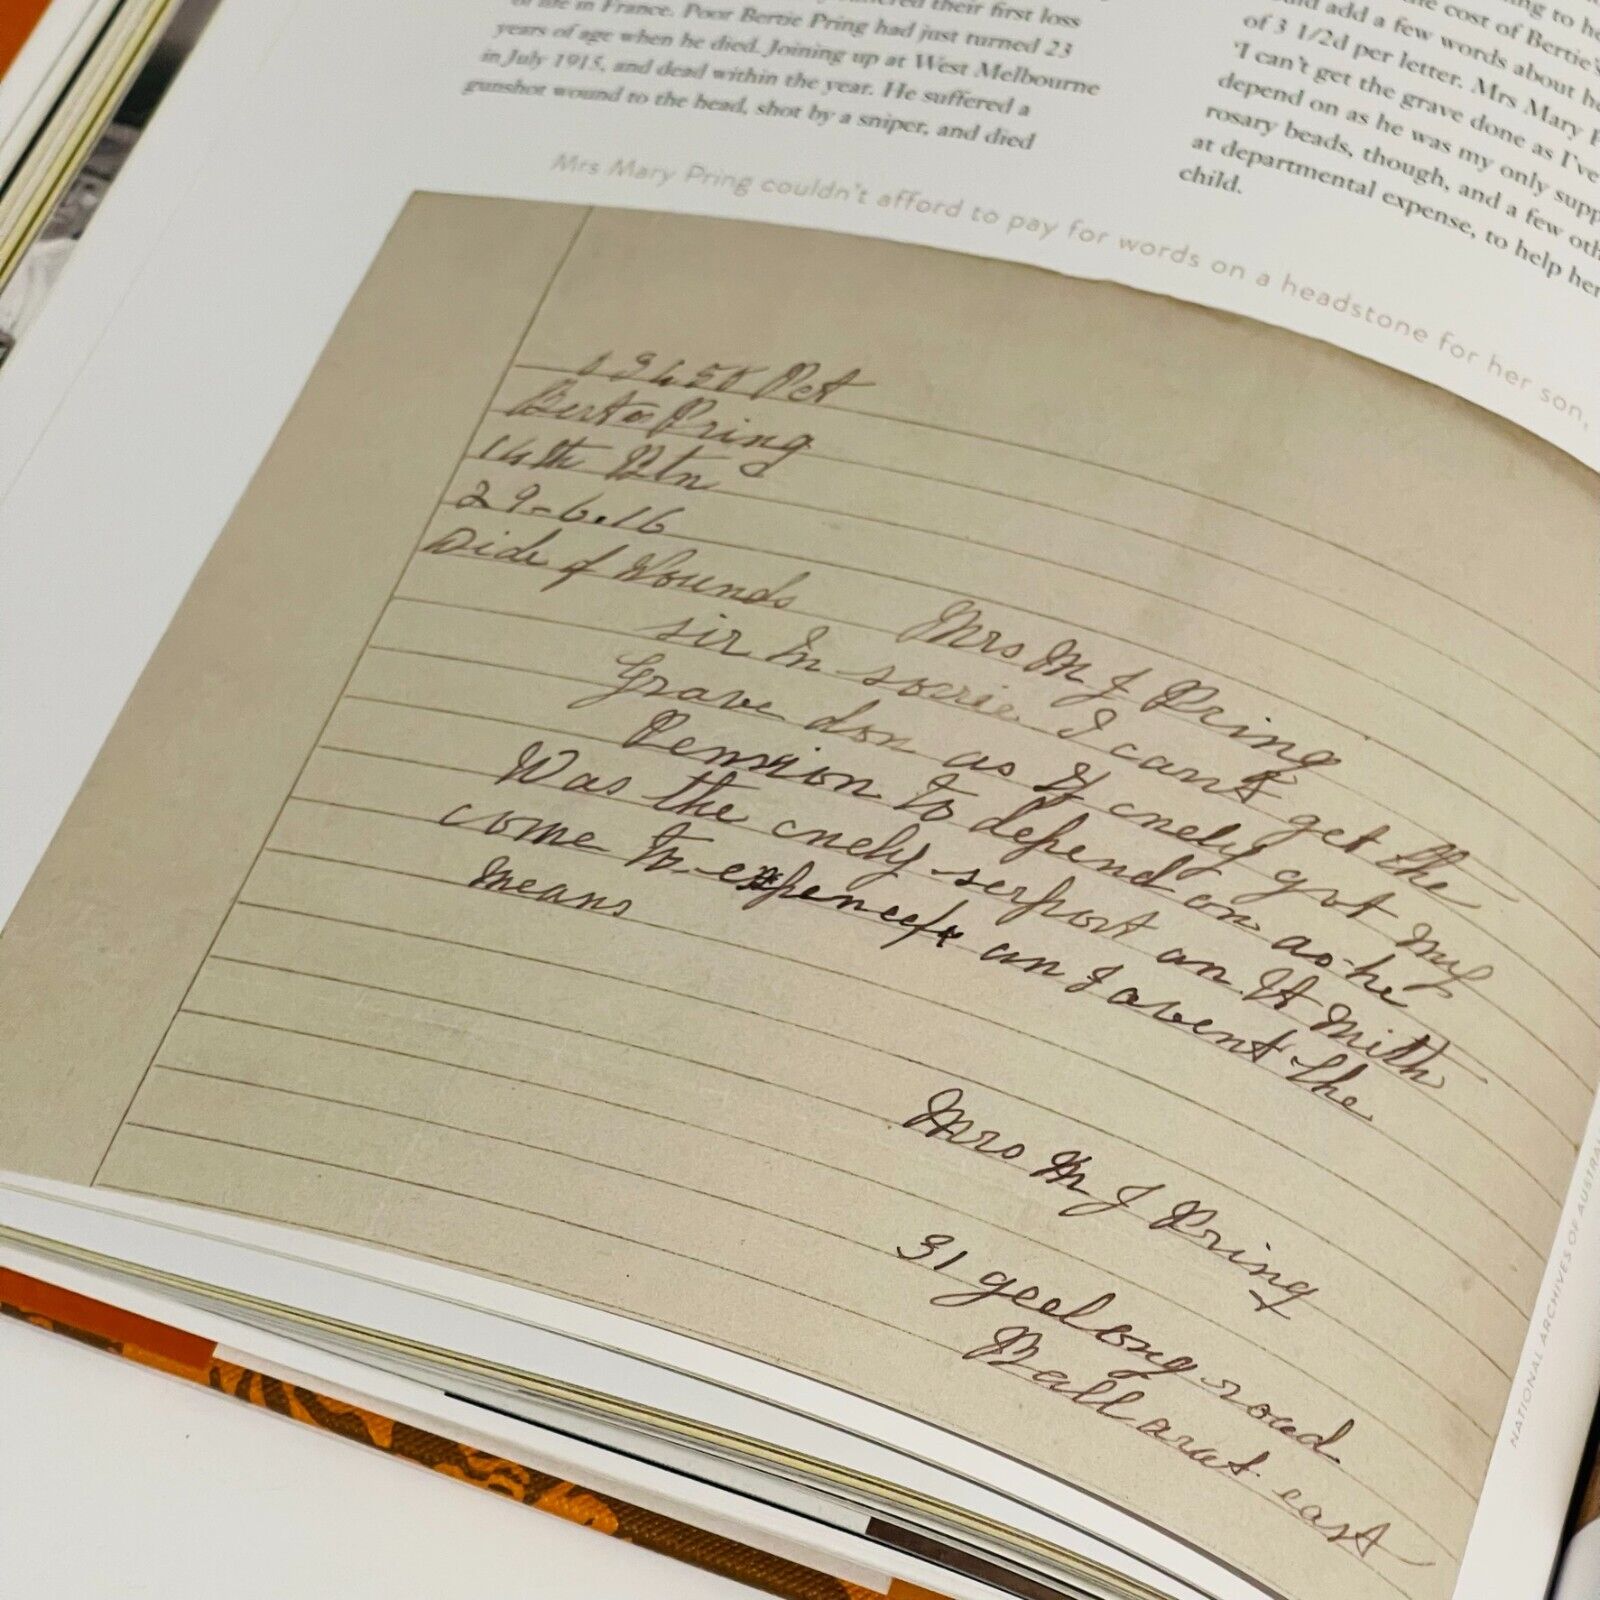 of life in France. Poor Bertie Pring had just turned 23
years of age when he died. Joining up at West Melbourne
in July 1915, and dead within the year. He suffered a
gunshot wound to the head, shot by a sniper, and died
their first loss
to he
the cost of Bertie's
add a few words about he
of 3 1/2d per letter. Mrs Mary P
'I can't get the grave done as I've
depend on as he was my only supp
rosary beads, though, and a few oth
at departmental expense, to help her
child.
Mrs Mary Pring couldn't afford to pay for words on a headstone for her son,
Pct
Pring
14th Btn
29-6.16
Dide of Wounds
Mrs M J Pring
sir Im sorrie I cant get the
Grave don as I onely got my
Pension to depend on as he
Was the onely serport an It Mith
come to an I avent the
means
Mrs M J Pring
31 geelong road
Ballarat east
NATIONAL ARCHIVES OF AUSTRAL